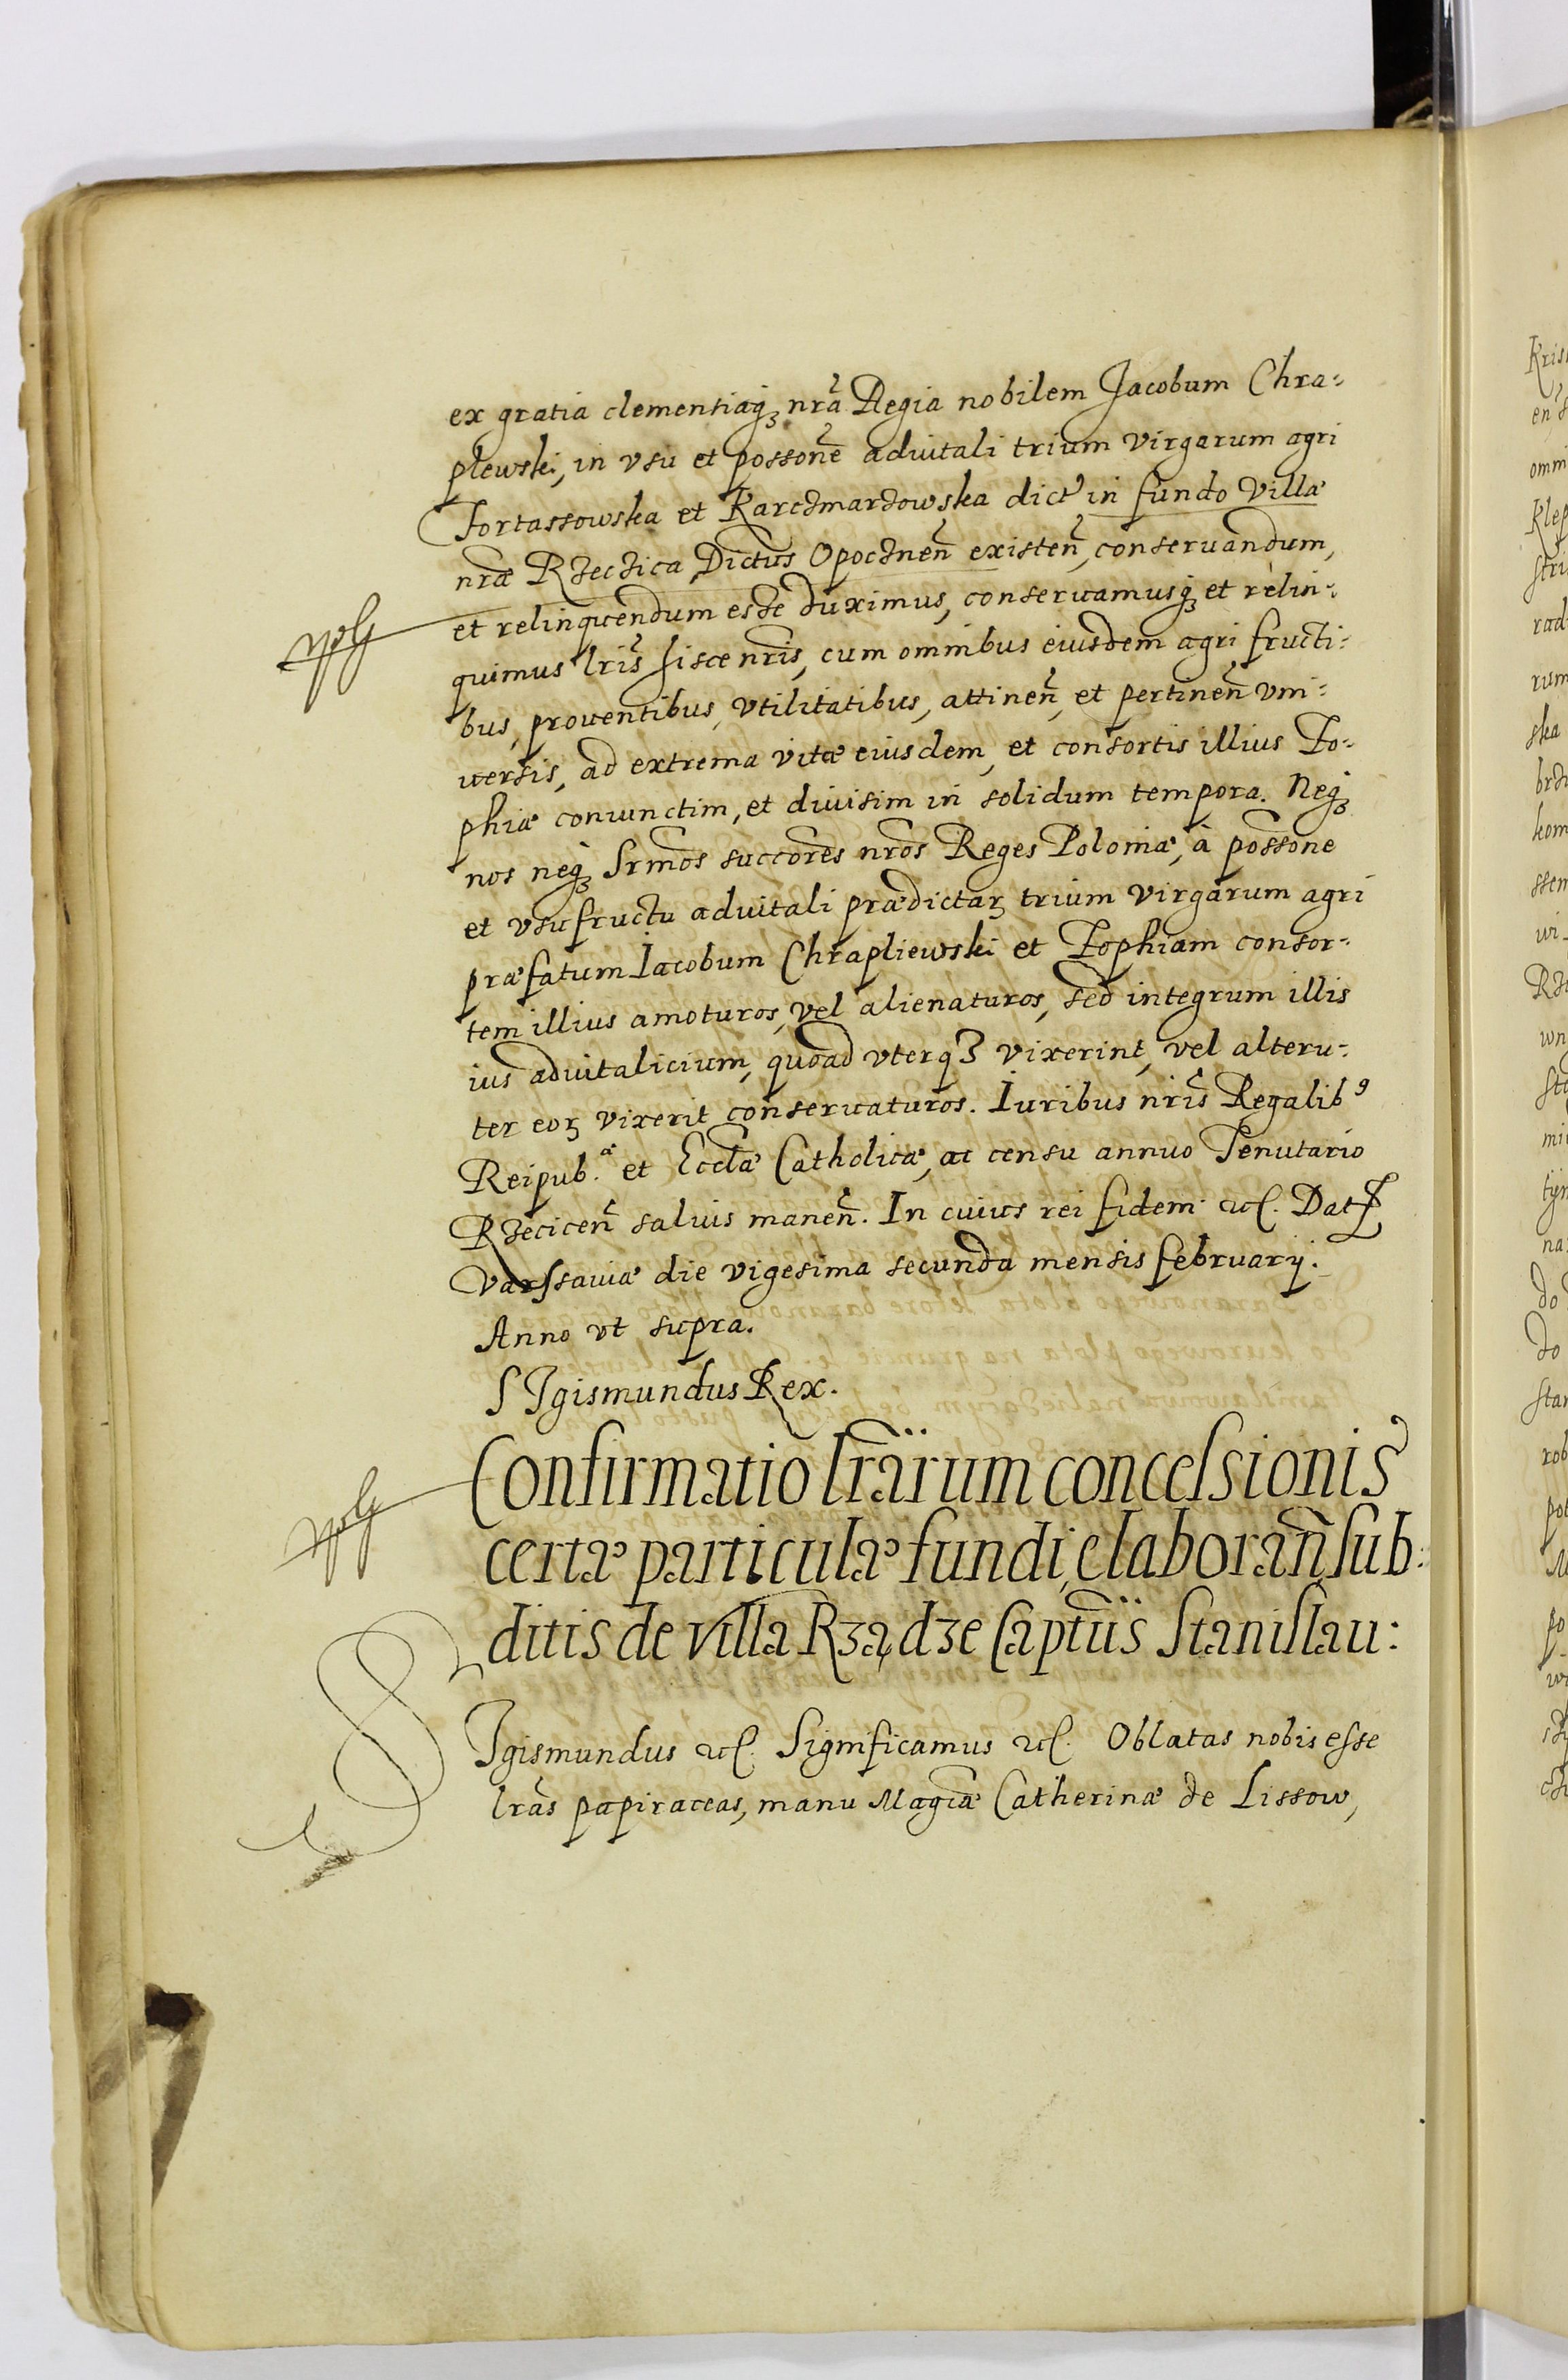 ex gratia clementiaq₃ nr̃a Regia nobilem Jacobum Chra-
plewski, in vsu et possone̅ aduitali trium virgarum agri
Fortassowska et Karczmarzowska dict' in fundo Villæ
nræ Rzeczica, Dictus Opocznen̅ existen̅, conseruandum,
et relinquendum esse duximus, conseruamusq₃ et relin-
quimus lris̃ hisce nris̃, cum omnibus eiusdem agri fructi-
bus, prouentibus, vtilitatibus, attinen̅, et pertinen̅ vni-
uersis, ad extrema vitæ eiusdem, et consortis illius Zo-
phiæ coniunctim, et diuisim in solidum tempora. Neq₃
nos neq₃ Srmos̃ succores̃ nros̃ Reges Poloniæ, à possone̅
et vsufructu aduitali prædictaꝝ trium virgarum agri
præfatum Iacobum Chrapliewski et Zophiam consor-
tem illius amoturos, vel alienaturos, sed integrum illis
ius aduitalicium, quoad vterq₃ vixerint, vel alteru-
ter eoꝝ vixerit conseruaturos. Iuribus nris̃ Regalibꝰ
Reipub.æ et Eccl̃æ Catholicæ, ac censu annuo Tenutario
Rzecicen̅ saluis manen̅. In cuius rei fidem etc. Datt
Varssauiæ die vigesima secunda mensis februarij.
Anno vt supra.
SIgismundus Rex.
Confirmatio lrãrum concessionis
certæ particulæ fundi, elaboran̅, sub:
ditis de villa Rządze Captũis Stanislau:
SIgismundus etc. Significamus etc. Oblatas nobis esse
lrãs papiraceas, manu Magcæ Catherinæ de Lissow,